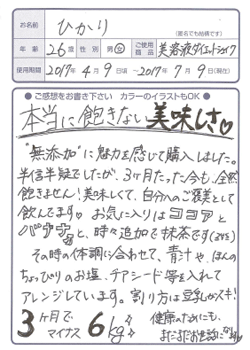 お名前
ひかり
(匿名でも結構です)
年齢 26歳 性別 男・女 ご使用商品 美容液ダイエットシェイク
使用期間 2017年4月9日頃〜2017年7月9日
●ご感想をお書き下さい カラーのイラストもOK●
本当に飽きない美味しさ♡
"無添加"に魅力を感じて購入しました。
半信半疑でしたが、3ヶ月たった今も、全然
飽きません!美味しくて、自分へのご褒美として
飲んでます♡ お気に入りはココアと
バナナと、時々追加で抹茶です(笑)
その時の体調に合わせて、青汁や、ほんの
ちょっぴりのお塩、チアシード等を入れて
アレンジしています。割り方は豆乳がスキ!
3ヶ月でマイナス6kg
健康のためにも、
まだまだお世話になります